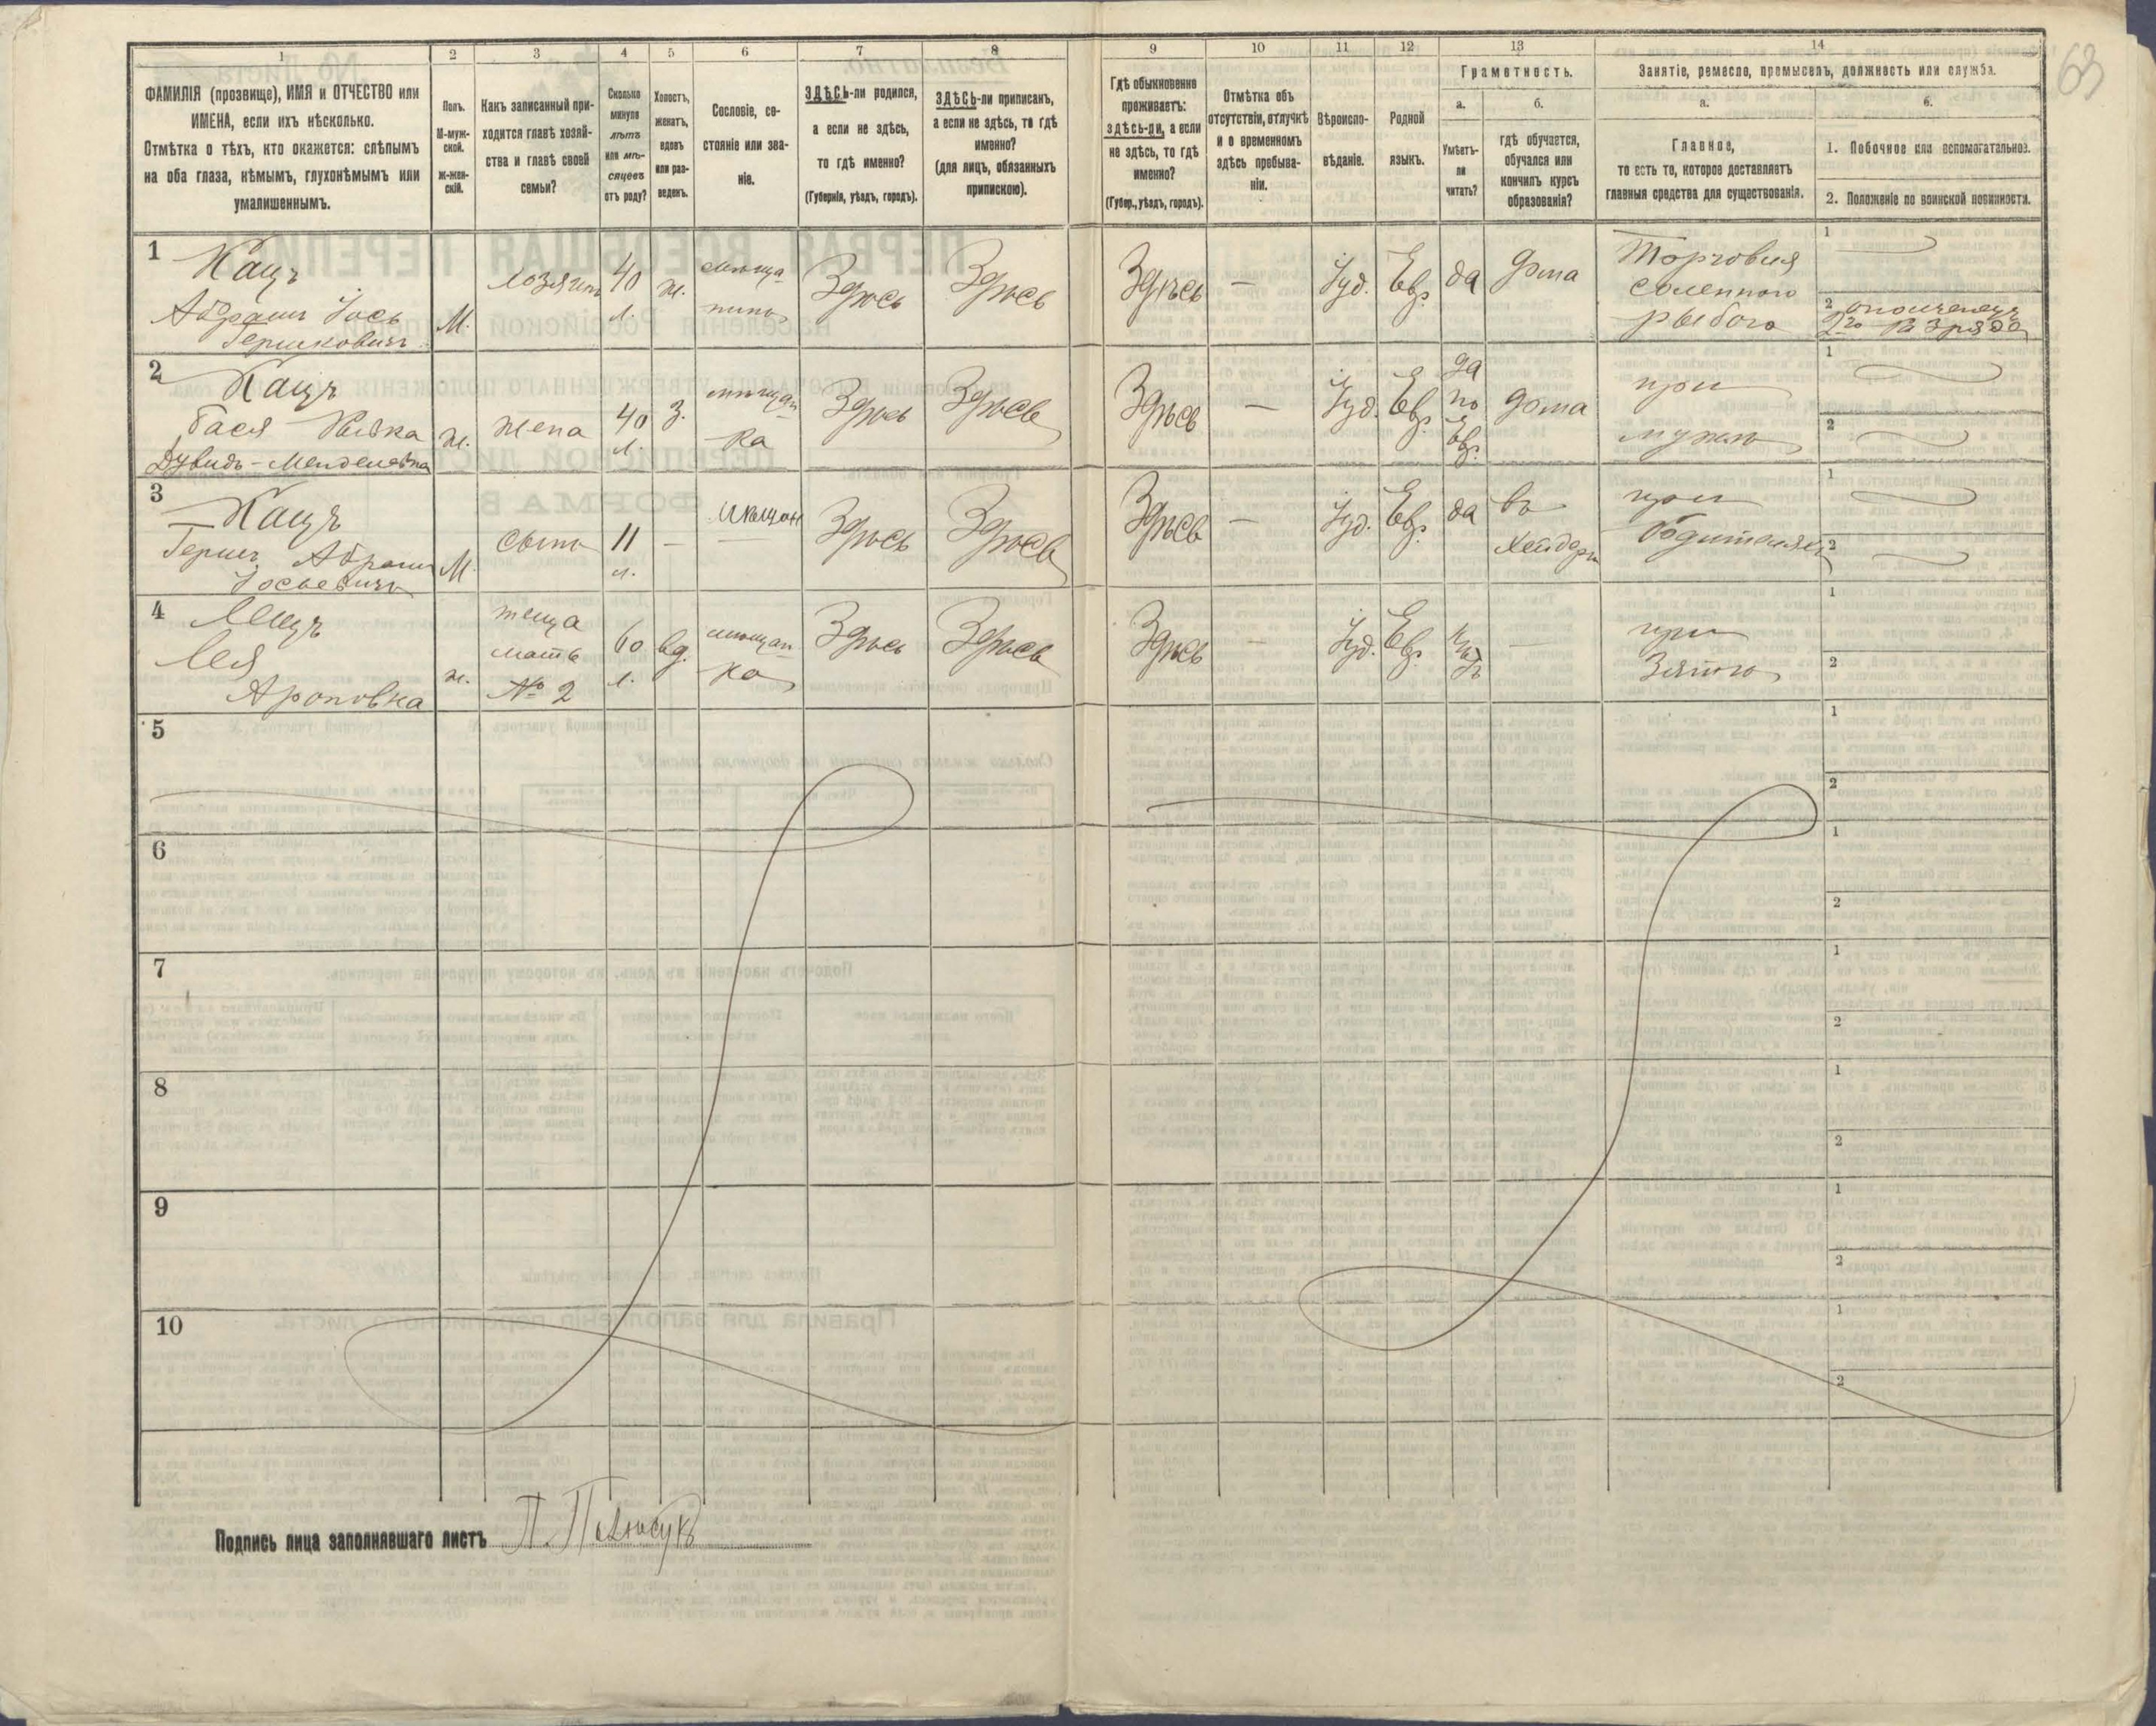 63
1 2 3 4 5 6 7 8 9 10 11 12 13 14
ФАМИЛІЯ (прозвище), ИМЯ и ОТЧЕСТВО или
ИМЕНА, если ихъ нѣсколько.
Отмѣтка о тѣхъ, кто окажется: слѣпымъ
на оба глаза, нѣмымъ, глухонѣмымъ или
умалишеннымъ.
Полъ.
М-муж-
ской.
ж-жен-
скій.
Какъ записанный при-
ходится главѣ хозяй-
ства и главѣ своей
семьи?
Сколько
минуло
лѣтъ
или мѣ-
сяцевъ
отъ роду?
Холостъ,
женатъ,
вдовъ
или раз-
веденъ.
Сословіе, со-
стояніе или зва-
ніе.
ЗДѢСЬ-ли родился,
а если не здѣсь,
то гдѣ именно?
(Губернія, уѣздъ, городъ).
ЗДѢСЬ-ли приписанъ,
а если не здѣсь, то гдѣ
именно?
(для лицъ, обязанныхъ
припискою).
Гдѣ обыкновенно
проживаетъ:
здѣсь-ли, а если
не здѣсь, то гдѣ
именно?
(Губер., уѣздъ, городъ).
Отмѣтка объ
отсутствіи, отлучкѣ
и о временномъ
здѣсь пребыва-
ніи.
Вѣроиспо-
вѣданіе.
Родной
языкъ.
Грамотность.
а.
Умѣетъ-
ли
читать?
б.
гдѣ обучается,
обучался или
кончилъ курсъ
образованія?
Занятіе, ремесло, промыселъ, должность или служба.
а.
Главное,
то есть то, которое доставляетъ
главныя средства для существованія.
б.
1. Побочное или вспомогательное.
2. Положеніе по воинской повинности.
1
Кацъ
Абрамъ Іось
Гершковичъ
М.
хозяинъ
40
л.
ж.
мѣща
нинъ
Здѣсь
Здѣсь
Здѣсь
—
Іуд.
Евр.
да
дома
Торговля
соленною
рыбою
1
2 ополченецъ
2го разряда
2
Кацъ
Бася Ривка
Дувидъ-Менделевна
ж.
жена
40
л.
З.
мѣщан
ка
Здѣсь
Здѣсь
Здѣсь
—
Іуд.
Евр.
да
по
Евр.
дома
при
мужѣ
1
2
3
Кацъ
Гершъ Абрамъ
Іосьевичъ
М.
сынъ
11
л.
—
мѣщан
Здѣсь
Здѣсь
Здѣсь
—
Іуд.
Евр.
да
въ
Хейдерѣ
при
Родителяхъ
1
2
4
Лея
Ароновна
ж.
теща
мать
№ 2
60
л.
вд.
мѣщан
ка
Здѣсь
Здѣсь
Здѣсь
—
Іуд.
Евр.
нѣ
тъ
—
при
Зятѣ
1
2
5
1
2
6
1
2
7
1
2
8
1
2
9
1
2
10
1
2
Подпись лица заполнявшаго листъ